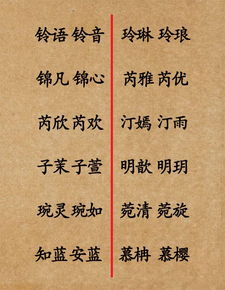 铃语 铃音 玲琳 玲琅
锦凡 锦心 芮雅 芮优
芮欣 芮欢 汀嫣 汀雨
子茉 子萱 明歆 明玥
琬灵 琬如 菀清 菀旋
知蓝 安蓝 慕冉 慕樱